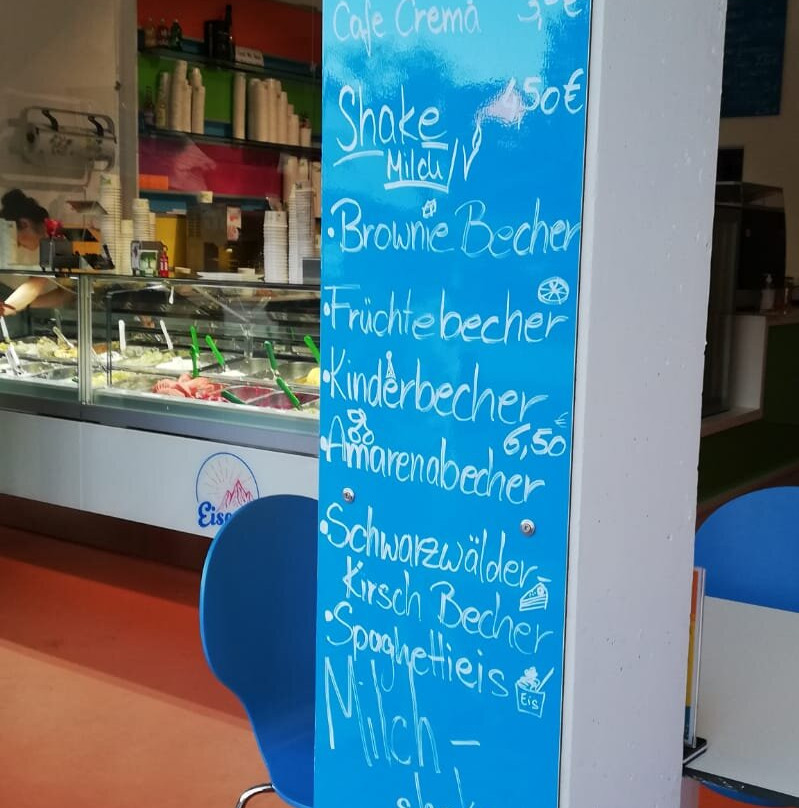 Cafe Crema
Shake 4,50€
Milch/V
• Brownie Becher
• Früchtebecher
• Kinderbecher
6,50€
• Amarenabecher
• Schwarzwälder-
Kirsch Becher
• Spaghettieis
Eis
Milch-